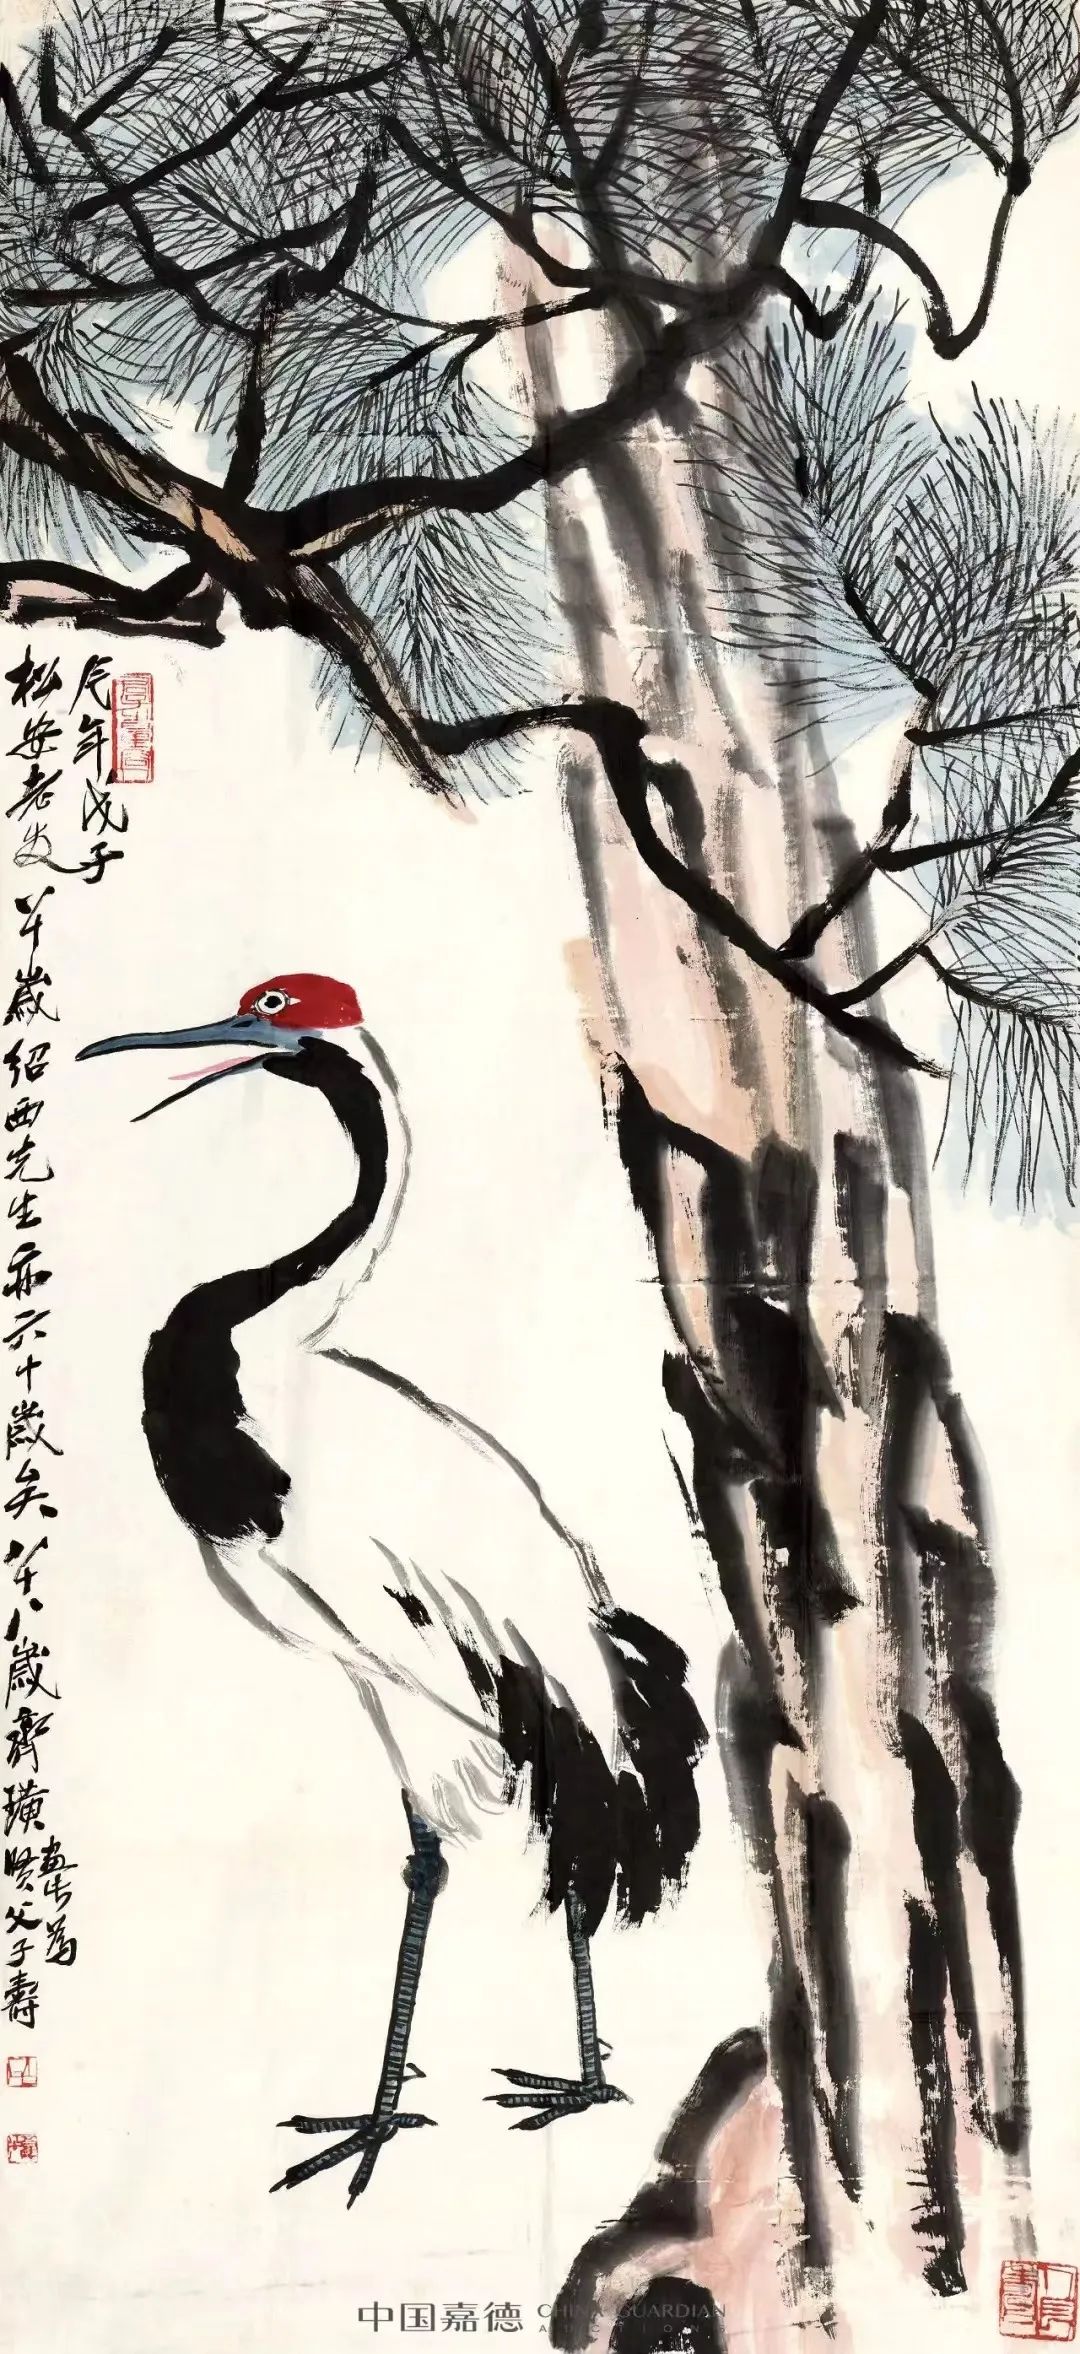 是年戊子
松安老友八十歲紹西先生亦六十歲矣八十八歲齊璜
畫此為
賢父子壽
中国嘉德 CHINA GUARDIAN
AUCTIONS